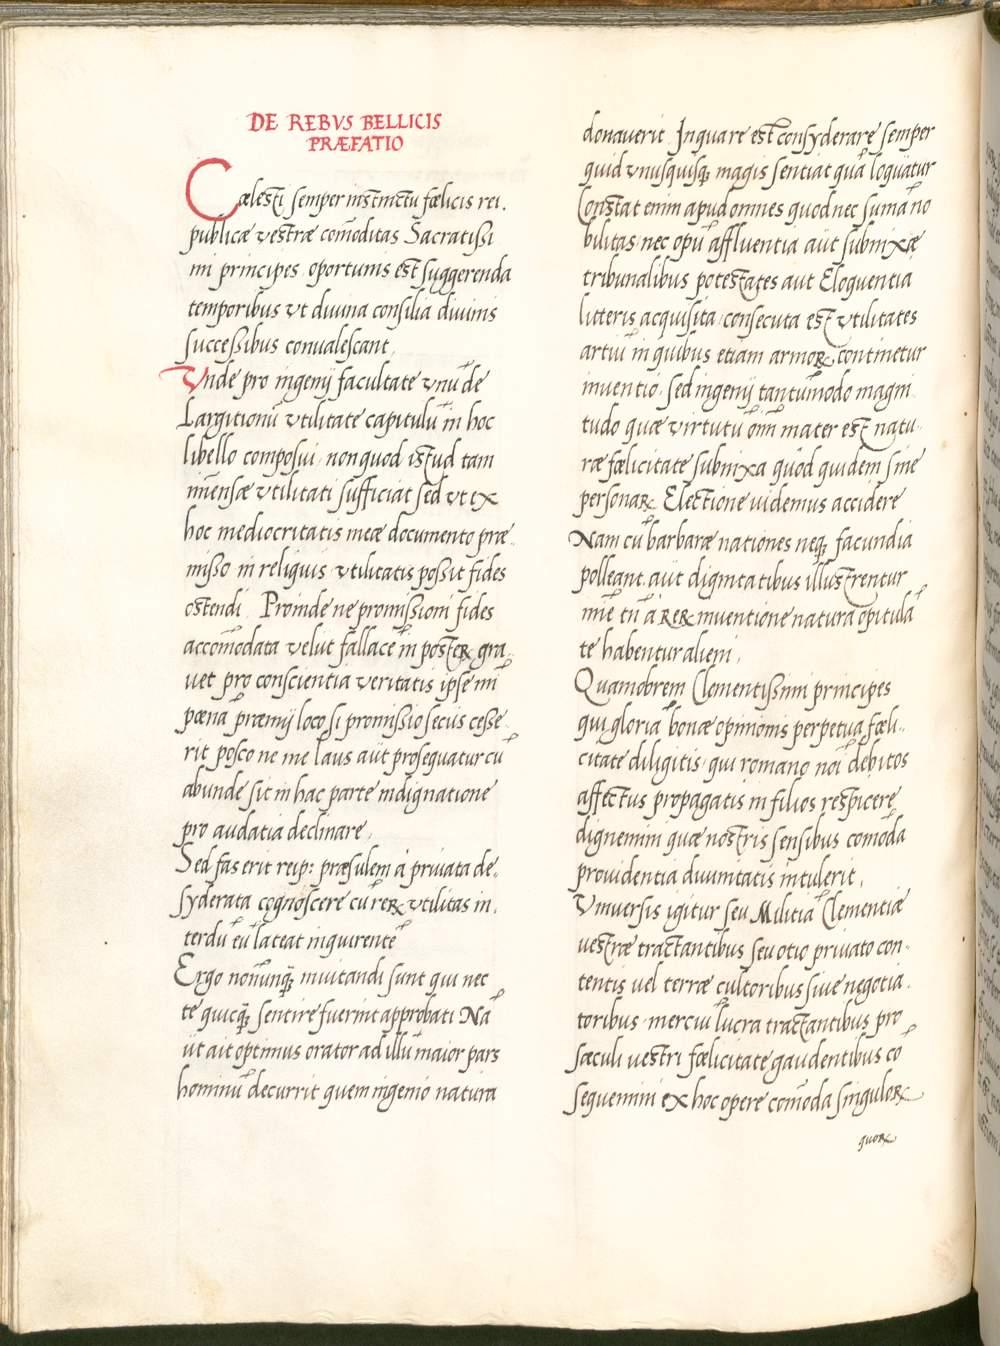 DE REBVS BELLICIS
PRÆFATIO
Cælesti semper instinctu fœlicis rei.
publicæ vestræ com̃oditas Sacratissi
mi principes oportunis est suggerenda
temporibus vt diuina consilia diuinis
successibus conualescant,
Vnde pro ingenij facultate vnũ de
Largitionũ vtilitate capitulũ in hoc
libello composui, non quod istud tam
im̃ensæ vtilitati sufficiat sed vt ex
hoc mediocritatis meæ documento præ
misso in reliquis vtilitatis possit fides
ostendi. Proinde ne promissioni fides
accom̃odata velut fallacẽ in posteꝝ gra..
uet pro conscientia veritatis ipse mĩ
pœnã præmij loco si promissio secus cesse
rit posco ne me laus aut prosequatur cũ
abunde sit in hac parte indignationẽ
pro audatia declinare,
Sed fas erit reip: præsulem a priuata de.
syderata cognoscere cũ reꝝ vtilitas in.
terdũ eũ lateat inquirentẽ
Ergo non̄unq̃ȝ inuitandi sunt qui nec
te quicq̃ȝ sentire fuerint approbati Nã
ut ait optimus orator ad illũ maior pars
hominũ decurrit quem ingenio natura
donauerit Inqua re est consyderare semper
quid vnusquisqȝ magis sentiat quã loquatur
Constat enim apud omnes quod nec sum̃a no
bilitas nec opũ affluentia aut subnixæ
tribunalibus potestates aut Eloquentia
litteris acquisita consecuta est vtilitates
artiũ in quibus etiam armoꝝ continetur
inuentio, sed ingenij tantum̃odo magni
tudo quæ virtutũ oĩm mater est natu.
ræ fœlicitate subnixa quod quidem sine
personaꝝ Electione uidemus accidere
Nam cũ barbaræ nationes neqȝ facundia
polleant aut dignitatibus illustrentur
mĩe tñ a reꝝ inuentione natura opitulã
te habentur alieni,
Quamobrem Clementissimi principes
qui gloriã bonæ opinionis perpetua fœli..
citate diligitis, qui romano noĩ debitos
affectus propagatis in filios respicere
dignemini quæ nostris sensibus comoda
prouidentia diuinitatis intulerit,
Vniuersis igitur seu Militiã Clementiæ
uestræ tractantibus seu otio priuato con.
tentis uel terræ cultoribus siue negotia.
toribus merciũ lucra tractantibus pro
sæculi uestri fœlicitate gaudentibus cõ
sequemini ex hoc opere com̃oda singuloꝝ
quoꝝ